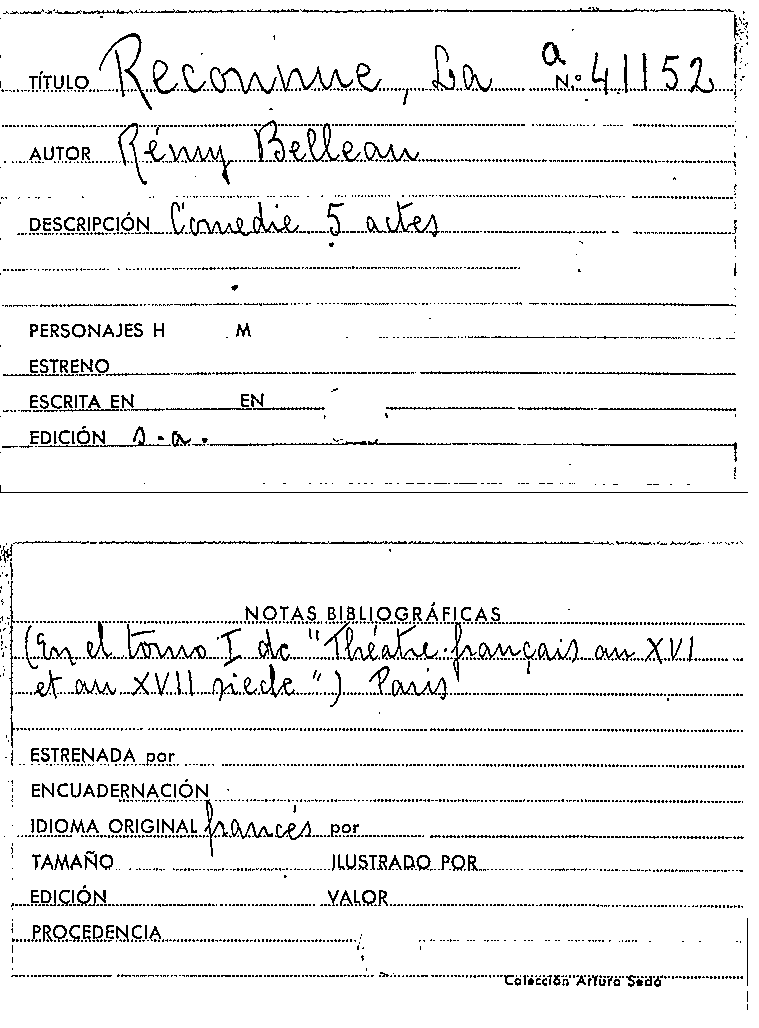 TÍTULO Reconnue, La a N.º 41152
AUTOR Rémy Belleau
DESCRIPCIÓN Comedie 5 actes
PERSONAJES H M
ESTRENO
ESCRITA EN EN
EDICIÓN s.a.
NOTAS BIBLIOGRÁFICAS
(En el tomo I de "Théatre français au XVI
et au XVII siecle") Paris
ESTRENADA por
ENCUADERNACIÓN
IDIOMA ORIGINAL francés por
TAMAÑO ILUSTRADO POR
EDICIÓN VALOR
PROCEDENCIA
Colección Arturo Sedó